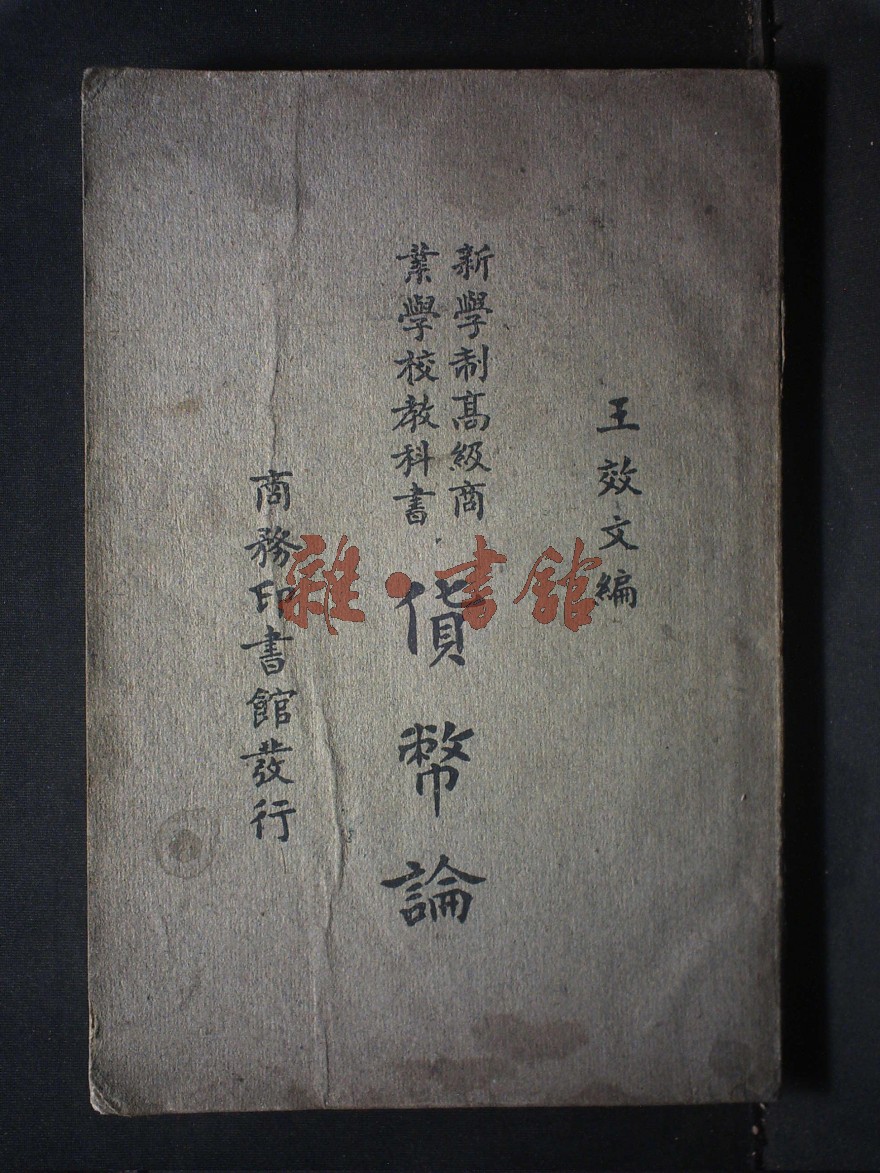 王效文編
新學制高級商
業學校教科書
貨幣論
商務印書館發行
雜·書館